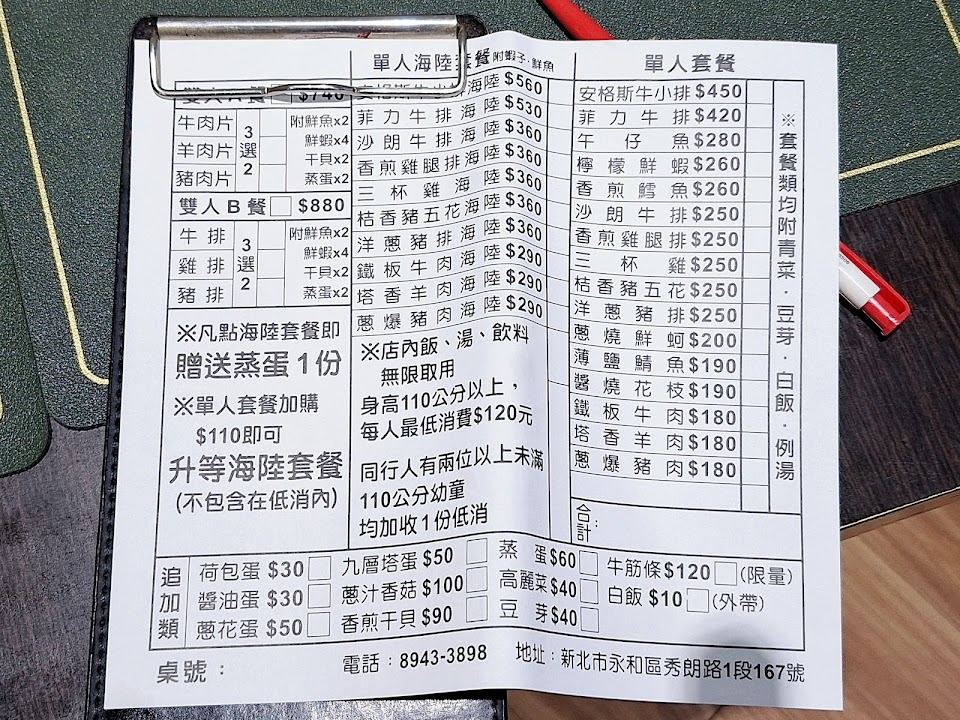 雙人A餐 $740
牛肉片
羊肉片
豬肉片
3選2
附鮮魚x2
鮮蝦x4
干貝x2
蒸蛋x2
雙人B餐 $880
牛排
雞排
豬排
3選2
附鮮魚x2
鮮蝦x4
干貝x2
蒸蛋x2
※凡點海陸套餐即
贈送蒸蛋1份
※單人套餐加購
$110即可
升等海陸套餐
(不包含在低消內)
單人海陸套餐 附蝦子.鮮魚
安格斯牛小排海陸 $560
菲力牛排海陸 $530
沙朗牛排海陸 $360
香煎雞腿排海陸 $360
三杯雞海陸 $360
桔香豬五花海陸 $360
洋蔥豬排海陸 $360
鐵板牛肉海陸 $290
塔香羊肉海陸 $290
蔥爆豬肉海陸 $290
※店內飯、湯、飲料
無限取用
身高110公分以上，
每人最低消費$120元
同行人有兩位以上未滿
110公分幼童
均加收1份低消
單人套餐
安格斯牛小排 $450
菲力牛排 $420
午仔魚 $280
檸檬鮮蝦 $260
香煎鱈魚 $260
沙朗牛排 $250
香煎雞腿排 $250
三杯雞 $250
桔香豬五花 $250
洋蔥豬排 $250
蔥燒鮮蚵 $200
薄鹽鯖魚 $190
醬燒花枝 $190
鐵板牛肉 $180
塔香羊肉 $180
蔥爆豬肉 $180
※套餐類均附青菜.豆芽.白飯.例湯
合計：
追加類
荷包蛋 $30
醬油蛋 $30
蔥花蛋 $50
九層塔蛋 $50
蔥汁香菇 $100
香煎干貝 $90
蒸蛋 $60
高麗菜 $40
豆芽 $40
牛筋條 $120 (限量)
白飯 $10 (外帶)
桌號：
電話：8943-3898
地址：新北市永和區秀朗路1段167號